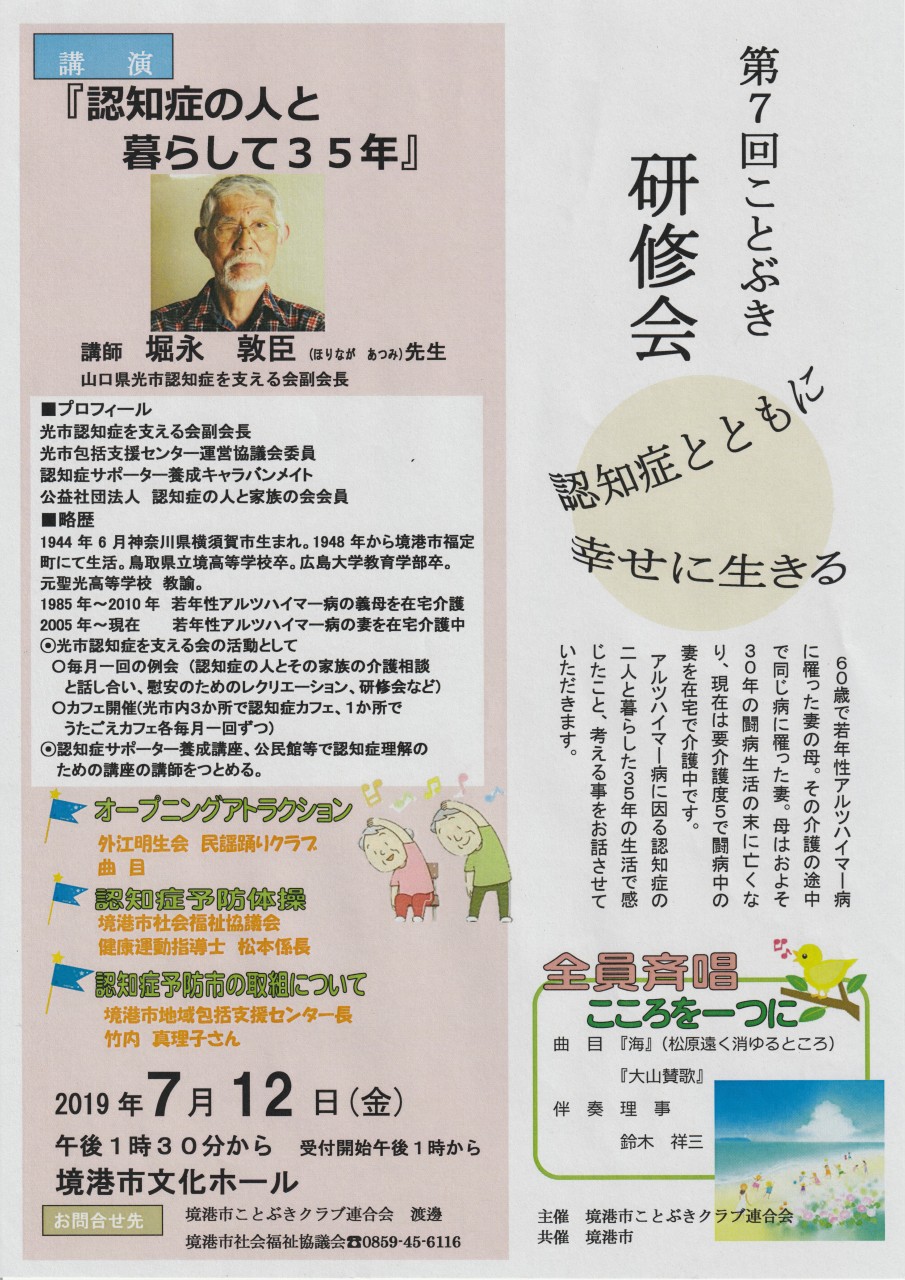 第7回ことぶき
研修会
認知症とともに
幸せに生きる
６０歳で若年性アルツハイマー病
に罹った妻の母。その介護の途中
で同じ病に罹った妻。母はおよそ
３０年の闘病生活の末に亡くな
り、現在は要介護度５で闘病中の
妻を在宅で介護中です。
アルツハイマー病に因る認知症の
二人と暮らした３５年の生活で感
じたこと、考える事をお話させて
いただきます。
全員斉唱
こころを一つに
曲　目　『海』（松原遠く消ゆるところ）
『大山賛歌』
伴　奏　理　事
鈴木　祥三
主催　境港市ことぶきクラブ連合会
共催　境港市
講　演
『認知症の人と
暮らして３５年』
講師　堀永　敦臣（ほりなが　あつみ）先生
山口県光市認知症を支える会副会長
■プロフィール
光市認知症を支える会副会長
光市包括支援センター運営協議会委員
認知症サポーター養成キャラバンメイト
公益社団法人　認知症の人と家族の会会員
■略歴
1944 年 6 月神奈川県横須賀市生まれ。1948 年から境港市福定
町にて生活。鳥取県立境高等学校卒。広島大学教育学部卒。
元聖光高等学校　教諭。
1985 年～2010 年　若年性アルツハイマー病の義母を在宅介護
2005 年～現在　　若年性アルツハイマー病の妻を在宅介護中
⦿光市認知症を支える会の活動として
○毎月一回の例会（認知症の人とその家族の介護相談
と話し合い、慰安のためのレクリエーション、研修会など）
○カフェ開催（光市内３か所で認知症カフェ、１か所で
うたごえカフェ各毎月一回ずつ）
⦿認知症サポーター養成講座、公民館等で認知症理解の
ための講座の講師をつとめる。
オープニングアトラクション
外江明生会　民謡踊りクラブ
曲　目
認知症予防体操
境港市社会福祉協議会
健康運動指導士　松本係長
認知症予防市の取組について
境港市地域包括支援センター長
竹内　真理子さん
2019 年 7 月 12 日（金）
午後１時３０分から　受付開始午後１時から
境港市文化ホール
お問合せ先　境港市ことぶきクラブ連合会　渡邊
境港市社会福祉協議会☎0859-45-6116